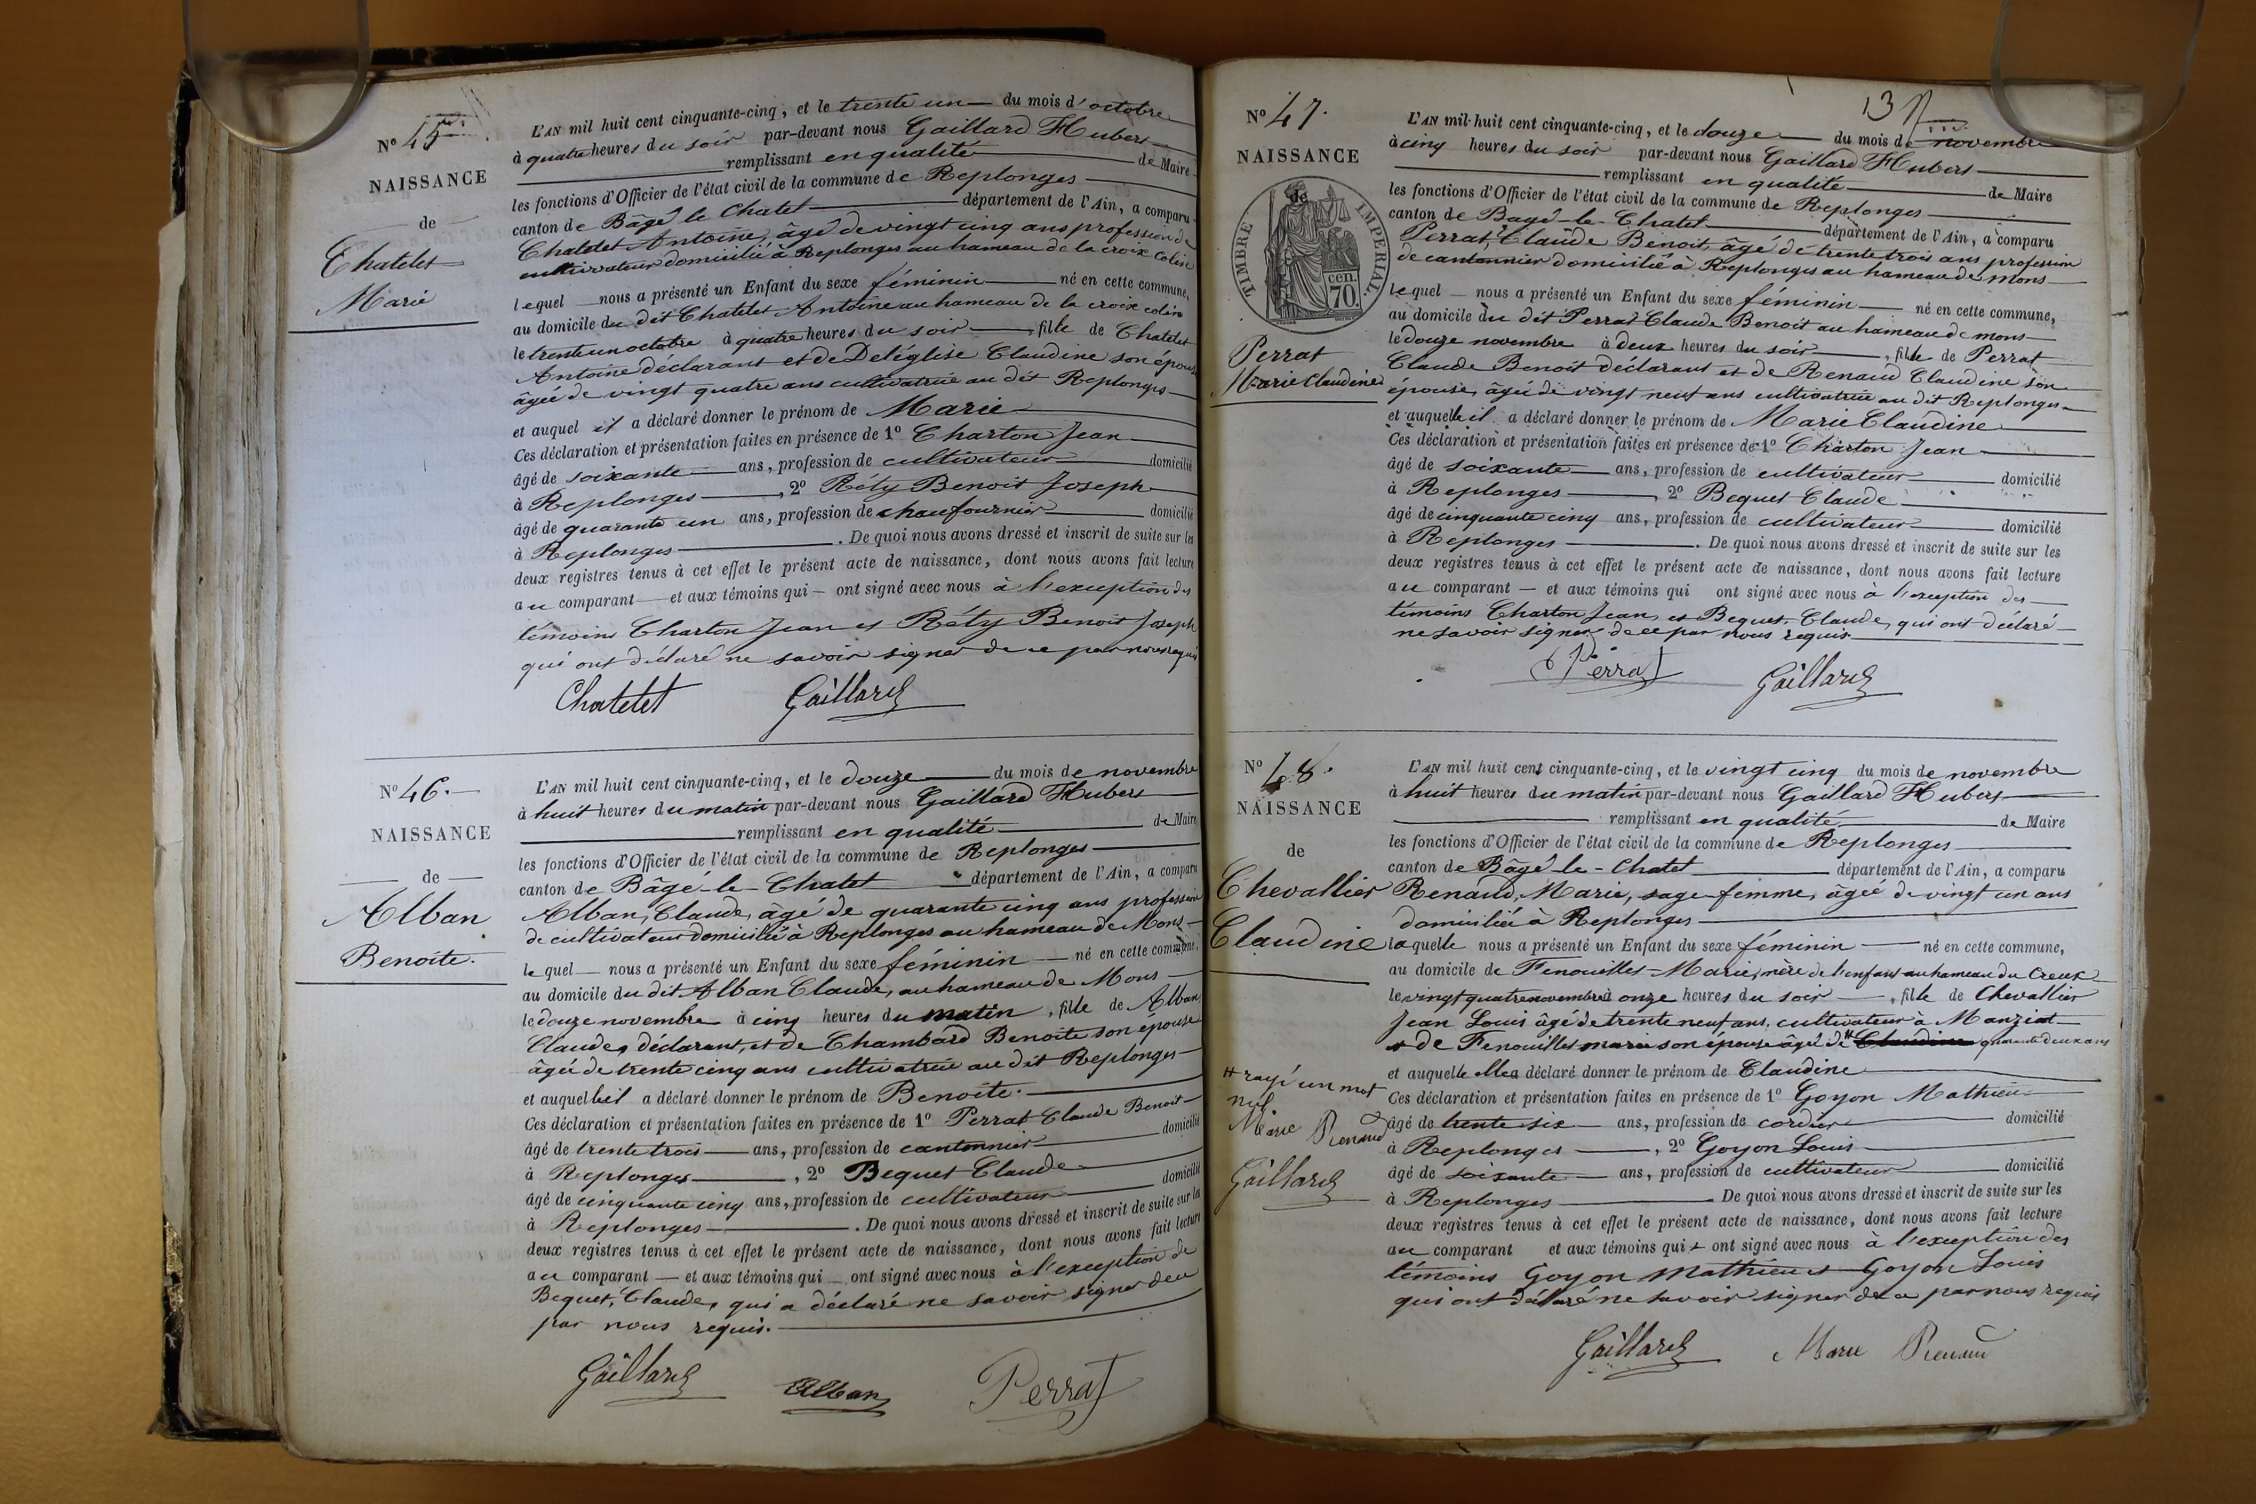 N° 45.
NAISSANCE
de
Chatelet
Marie
L'AN mil huit cent cinquante-cinq, et le trente un du mois d'octobre
à quatre heures du soir par-devant nous Gaillard Hubert
remplissant en qualité de Maire
les fonctions d'Officier de l'état civil de la commune de Replonges
canton de Bâgé le Chatel département de l'Ain, a comparu
Chatelet Antoine, âgé de vingt cinq ans profession de
cultivateur domicilié à Replonges au hameau de la croix colin
lequel nous a présenté un Enfant du sexe féminin né en cette commune,
au domicile du dit Chatelet Antoine au hameau de la croix colin
le trente un octobre à quatre heures du soir, fille de Chatelet
Antoine déclarant et de Deléglise Claudine son épouse
âgée de vingt quatre ans cultivatrice au dit Replonges
et auquel il a déclaré donner le prénom de Marie
Ces déclaration et présentation faites en présence de 1° Charton Jean
âgé de soixante ans, profession de cultivateur domicilié
à Replonges, 2° Réty Benoit Joseph
âgé de quarante un ans, profession de chaufournier domicilié
à Replonges. De quoi nous avons dressé et inscrit de suite sur les
deux registres tenus à cet effet le présent acte de naissance, dont nous avons fait lecture
au comparant et aux témoins qui ont signé avec nous à l'exception des
témoins Charton Jean et Réty Benoit Joseph
qui ont déclaré ne savoir signer de ce par nous requis
Chatelet Gaillard
N° 46.
NAISSANCE
de
Alban
Benoite.
L'AN mil huit cent cinquante-cinq, et le douze du mois de novembre
à huit heures du matin par-devant nous Gaillard Hubert
remplissant en qualité de Maire
les fonctions d'Officier de l'état civil de la commune de Replonges
canton de Bâgé-le-Chatel département de l'Ain, a comparu
Alban, Claude, âgé de quarante cinq ans profession
de cultivateur domicilié à Replonges au hameau de Mons
lequel nous a présenté un Enfant du sexe féminin né en cette commune,
au domicile du dit Alban Claude, au hameau de Mons
le douze novembre à cinq heures du matin, fille de Alban
Claude, déclarant, et de Chambard Benoite son épouse
âgée de trente cinq ans cultivatrice au dit Replonges
et auquel il a déclaré donner le prénom de Benoite.
Ces déclaration et présentation faites en présence de 1° Perrat Claude Benoit
âgé de trente trois ans, profession de cantonnier domicilié
à Replonges, 2° Bequet Claude
âgé de cinquante cinq ans, profession de cultivateur domicilié
à Replonges. De quoi nous avons dressé et inscrit de suite sur les
deux registres tenus à cet effet le présent acte de naissance, dont nous avons fait lecture
au comparant et aux témoins qui ont signé avec nous à l'exception de
Bequet, Claude, qui a déclaré ne savoir signer de ce
par nous requis.
Gaillard Alban Perrat
13
N° 47.
NAISSANCE
de
TIMBRE IMPERIAL.
cen. 70.
Perrat
Marie Claudine
L'AN mil-huit cent cinquante-cinq, et le douze du mois de novembre
à cinq heures du soir par-devant nous Gaillard Hubert
remplissant en qualité de Maire
les fonctions d'Officier de l'état civil de la commune de Replonges
canton de Bagé-le-Chatel département de l'Ain, a comparu
Perrat, Claude Benoit, âgé de trente trois ans profession
de cantonnier domicilié à Replonges au hameau de mons
lequel nous a présenté un Enfant du sexe féminin né en cette commune,
au domicile du dit Perrat Claude Benoit au hameau de mons
le douze novembre à deux heures du soir, fille de Perrat
Claude Benoit déclarant et de Renaud Claudine son
épouse, âgée de vingt neuf ans cultivatrice au dit Replonges
et auquelle il a déclaré donner le prénom de Marie Claudine
Ces déclaration et présentation faites en présence de 1° Charton Jean
âgé de soixante ans, profession de cultivateur domicilié
à Replonges, 2° Bequet Claude
âgé de cinquante cinq ans, profession de cultivateur domicilié
à Replonges. De quoi nous avons dressé et inscrit de suite sur les
deux registres tenus à cet effet le présent acte de naissance, dont nous avons fait lecture
au comparant et aux témoins qui ont signé avec nous à l'exception des
témoins Charton Jean et Bequet, Claude, qui ont déclaré
ne savoir signer de ce par nous requis.
Perrat Gaillard
N° 48.
NAISSANCE
de
Chevallier
Claudine
# rayé un mot
nul
Marie Renaud
Gaillard
L'AN mil huit cent cinquante-cinq, et le vingt cinq du mois de novembre
à huit heures du matin par-devant nous Gaillard Hubert
remplissant en qualité de Maire
les fonctions d'Officier de l'état civil de la commune de Replonges
canton de Bâgé-le-Chatel département de l'Ain, a comparu
Renaud, Marie, sage femme, âgée de vingt un ans
domiciliée à Replonges
laquelle nous a présenté un Enfant du sexe féminin né en cette commune,
au domicile de Fenouillet Marie, mère de l'enfant au hameau du Creux
le vingt quatre novembre à onze heures du soir, fille de Chevallier
Jean Louis âgé de trente neuf ans, cultivateur à Manziat
et de Fenouillet marie son épouse âgée de # Claudine quarante deux ans
et auquelle elle a déclaré donner le prénom de Claudine
Ces déclaration et présentation faites en présence de 1° Goyon Mathieu
âgé de trente six ans, profession de cordier domicilié
à Replonges, 2° Goyon Louis
âgé de soixante ans, profession de cultivateur domicilié
à Replonges De quoi nous avons dressé et inscrit de suite sur les
deux registres tenus à cet effet le présent acte de naissance, dont nous avons fait lecture
au comparant et aux témoins qui ont signé avec nous à l'exception des
témoins Goyon Mathieu et Goyon Louis
qui ont déclaré ne savoir signer de ce par nous requis
Gaillard Marie Renaud